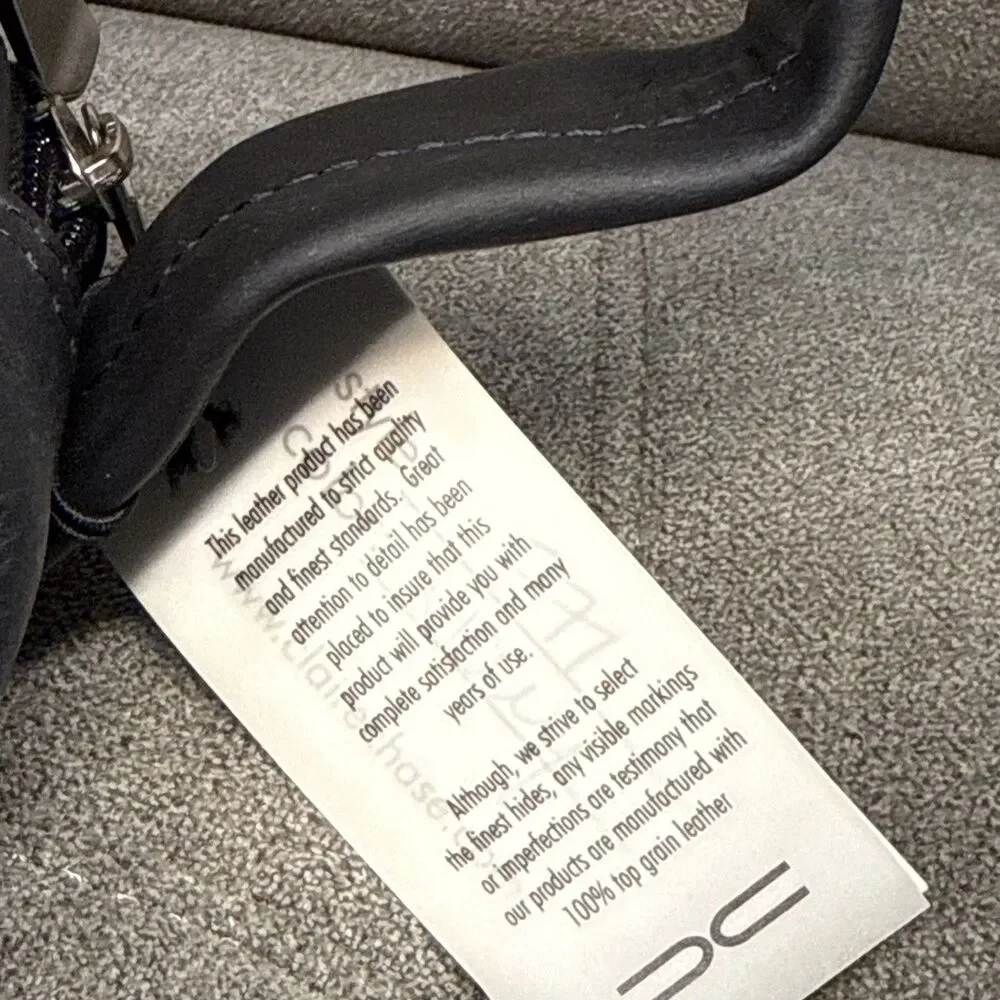 This leather product has been
manufactured to strict quality
and finest standards. Great
attention to detail has been
placed to insure that this
product will provide you with
complete satisfaction and many
years of use.
Although, we strive to select
the finest hides, any visible markings
or imperfections are testimony that
our products are manufactured with
100% top grain leather